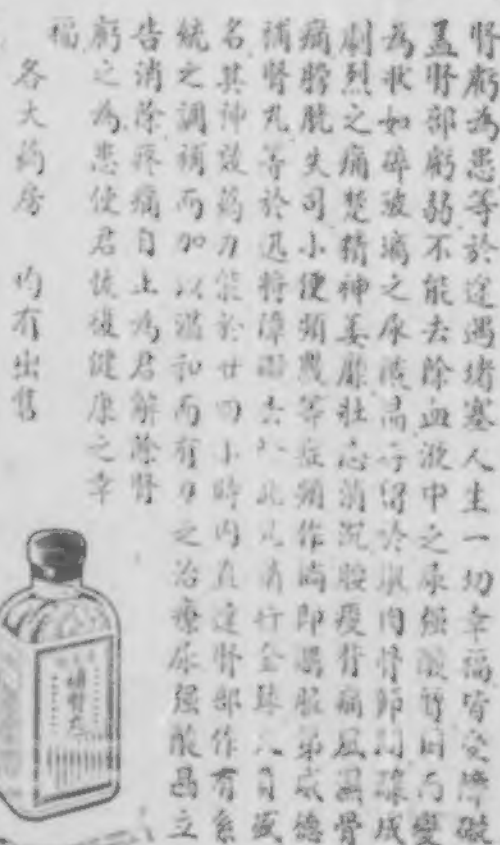 腎虧為患等於途遇堵塞人生一切幸福皆受障礙
蓋腎部虧弱不能去除血液中之尿强酸 而變
為狀如碎玻璃之尿 留於肌肉骨節間 成
劇烈之痛楚精神萎靡壯志消沉腰痠背痛風濕骨
痛膀胱失司小便頻數等症頻作 即 服第威德
補腎丸等於迅將障礙去 此丸 行全球
名其神效药力能於廿四小時内直達腎部作有系
統之調補而加以溫和而有力之治療尿强酸 立
告消除疼痛自止為君解除腎
虧之為患使君恢復健康之幸
福
各大药房 均有出售
補腎丸